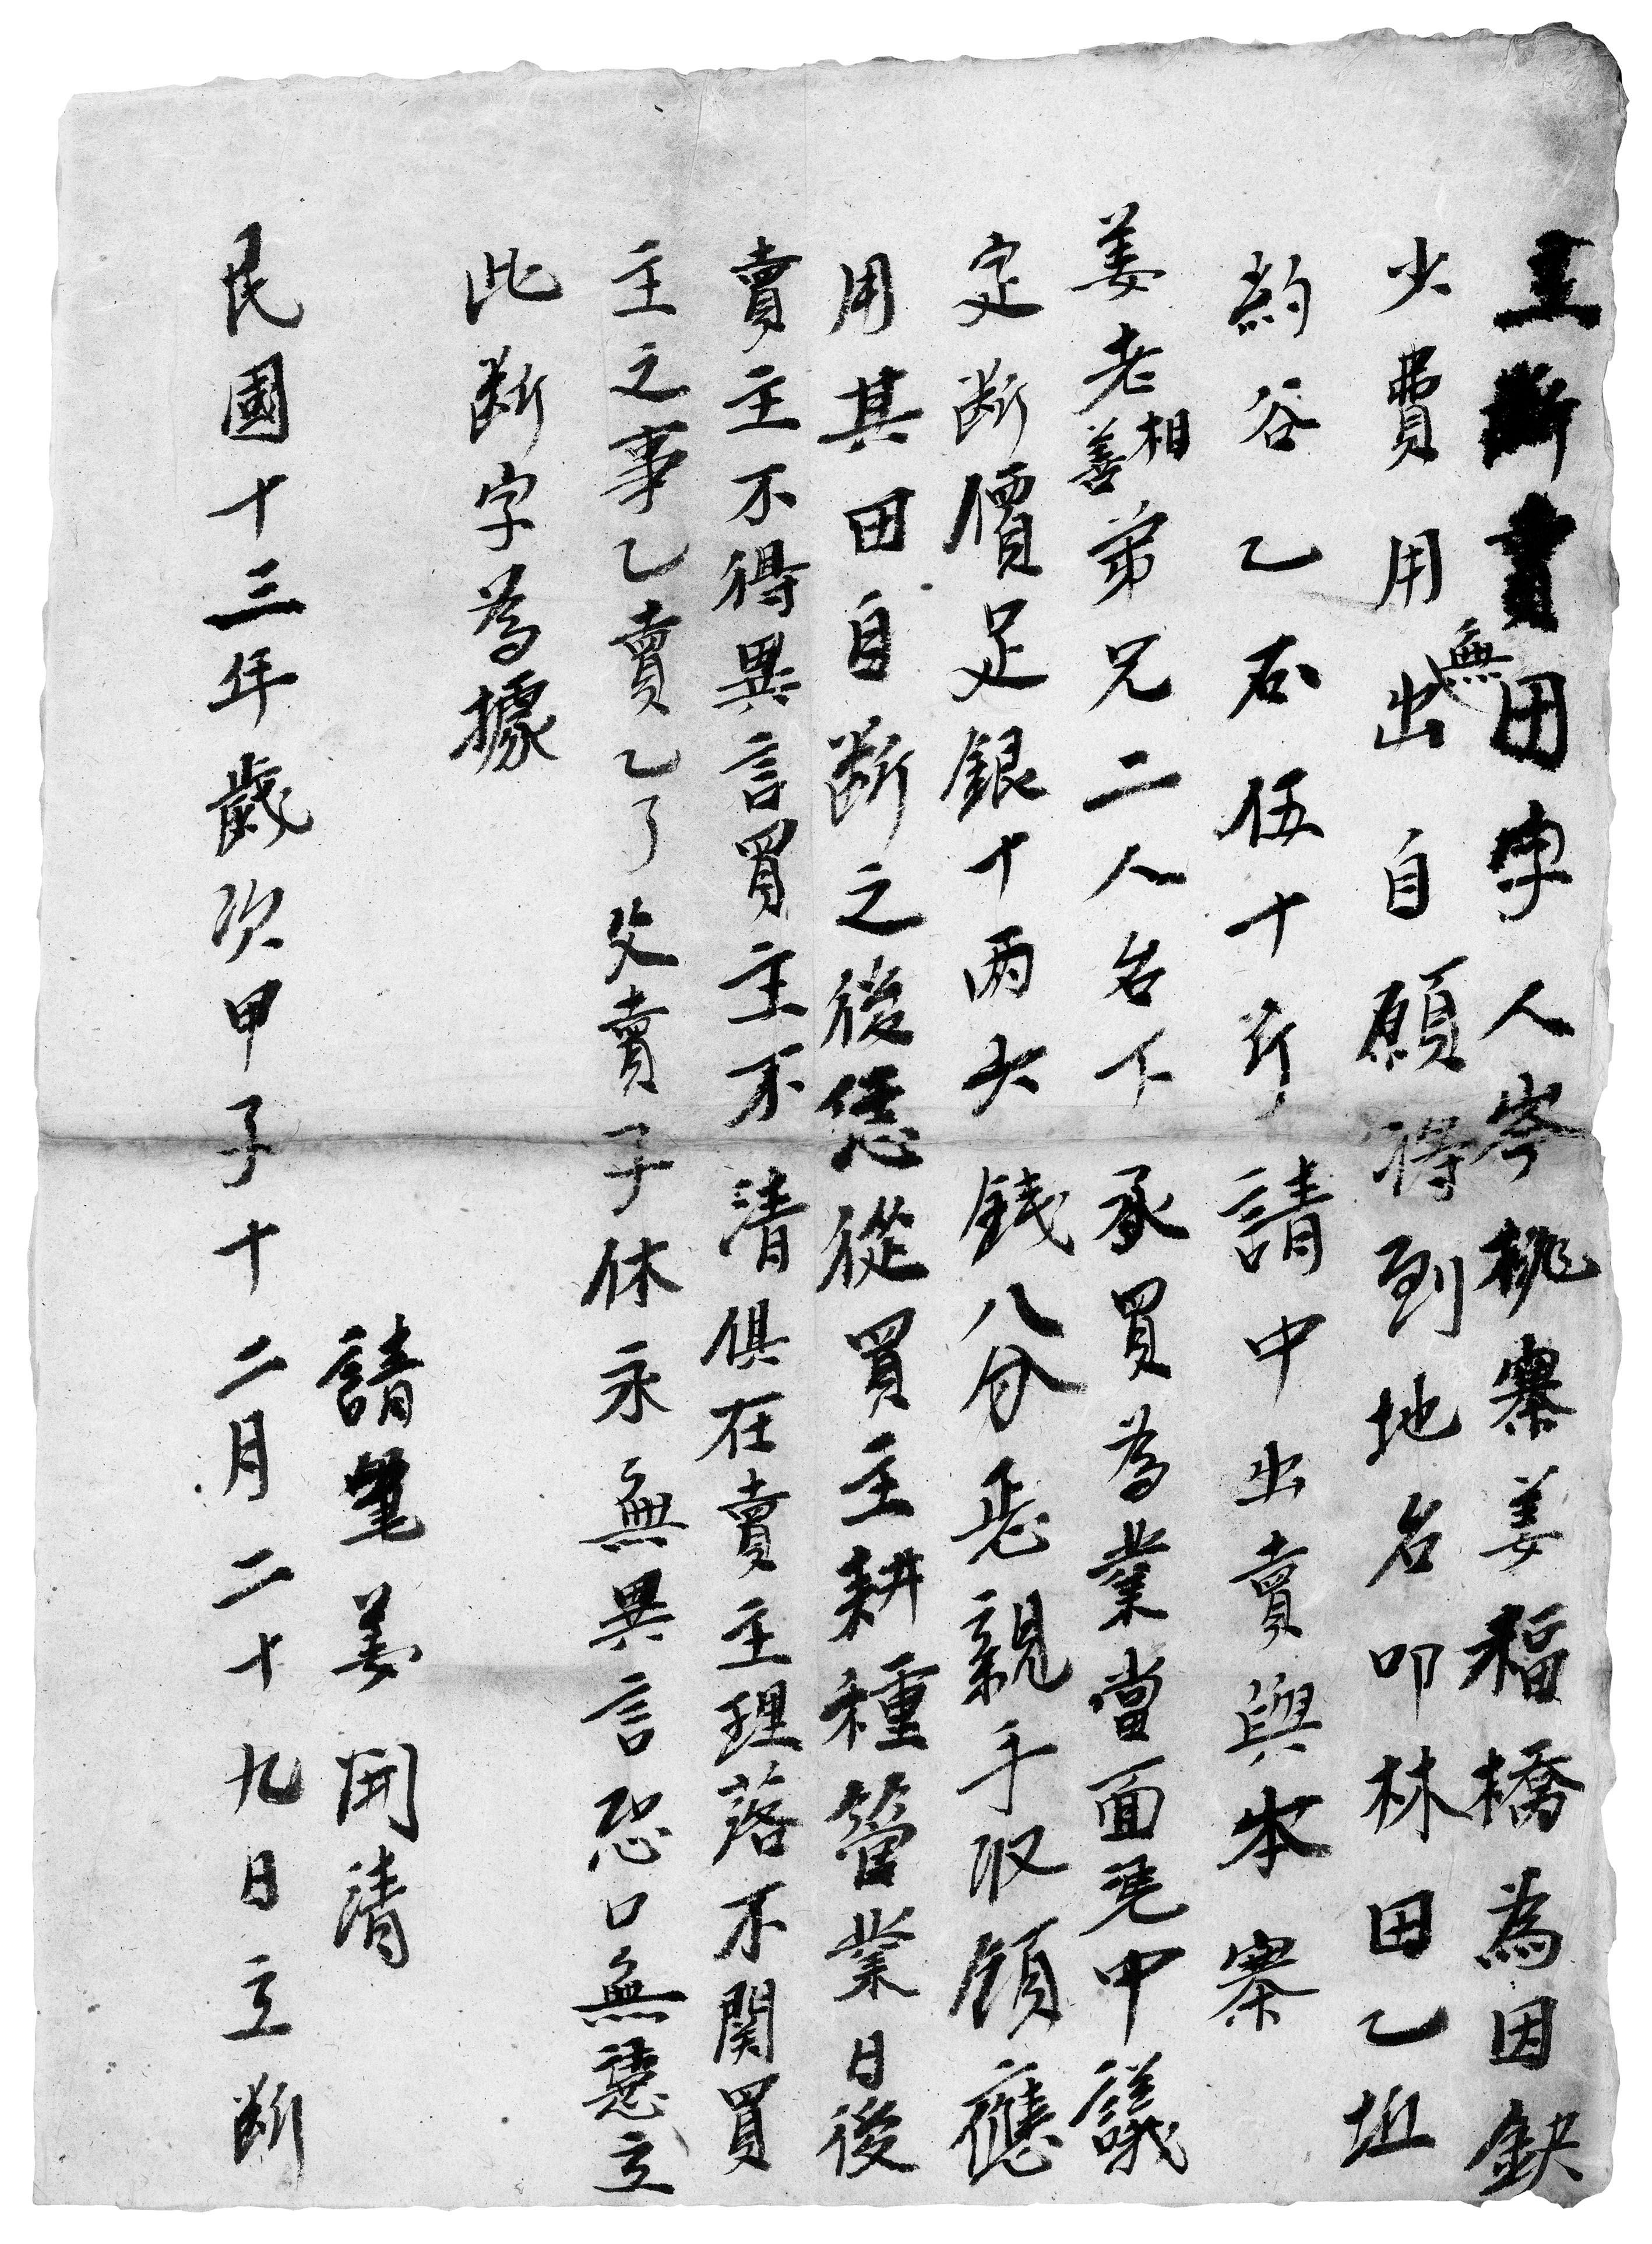 立斷賣田字人岑桃寨姜福橋為因缺
少費用無出自願將到地名叩林田乙坵
約谷乙石伍十斤請中出賣與本寨
姜老相善弟兄二人名下承買為業當面凴中議
定斷價足銀十兩六錢八分悉親手收領應
用其田自斷之後恁從買主耕種管業日後
賣主不得異言買主不清俱在賣主理落不関買
主之事乙賣乙了父賣子休永無異言恐口無憑立
此斷字為據
請筆姜開清
民國十三年歲次甲子十二月二十九日立斷